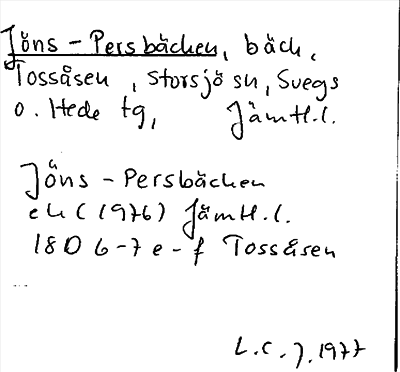 Jöns-Persbäcken, bäck,
Tossåsen, Storsjö sn, Svegs
o. Hede tg, Jämtl.l.
Jöns-Persbäcken
ek (1976) Jämtl.l.
18D 6-7 e-f Tossåsen
...
L.C.J. 1977